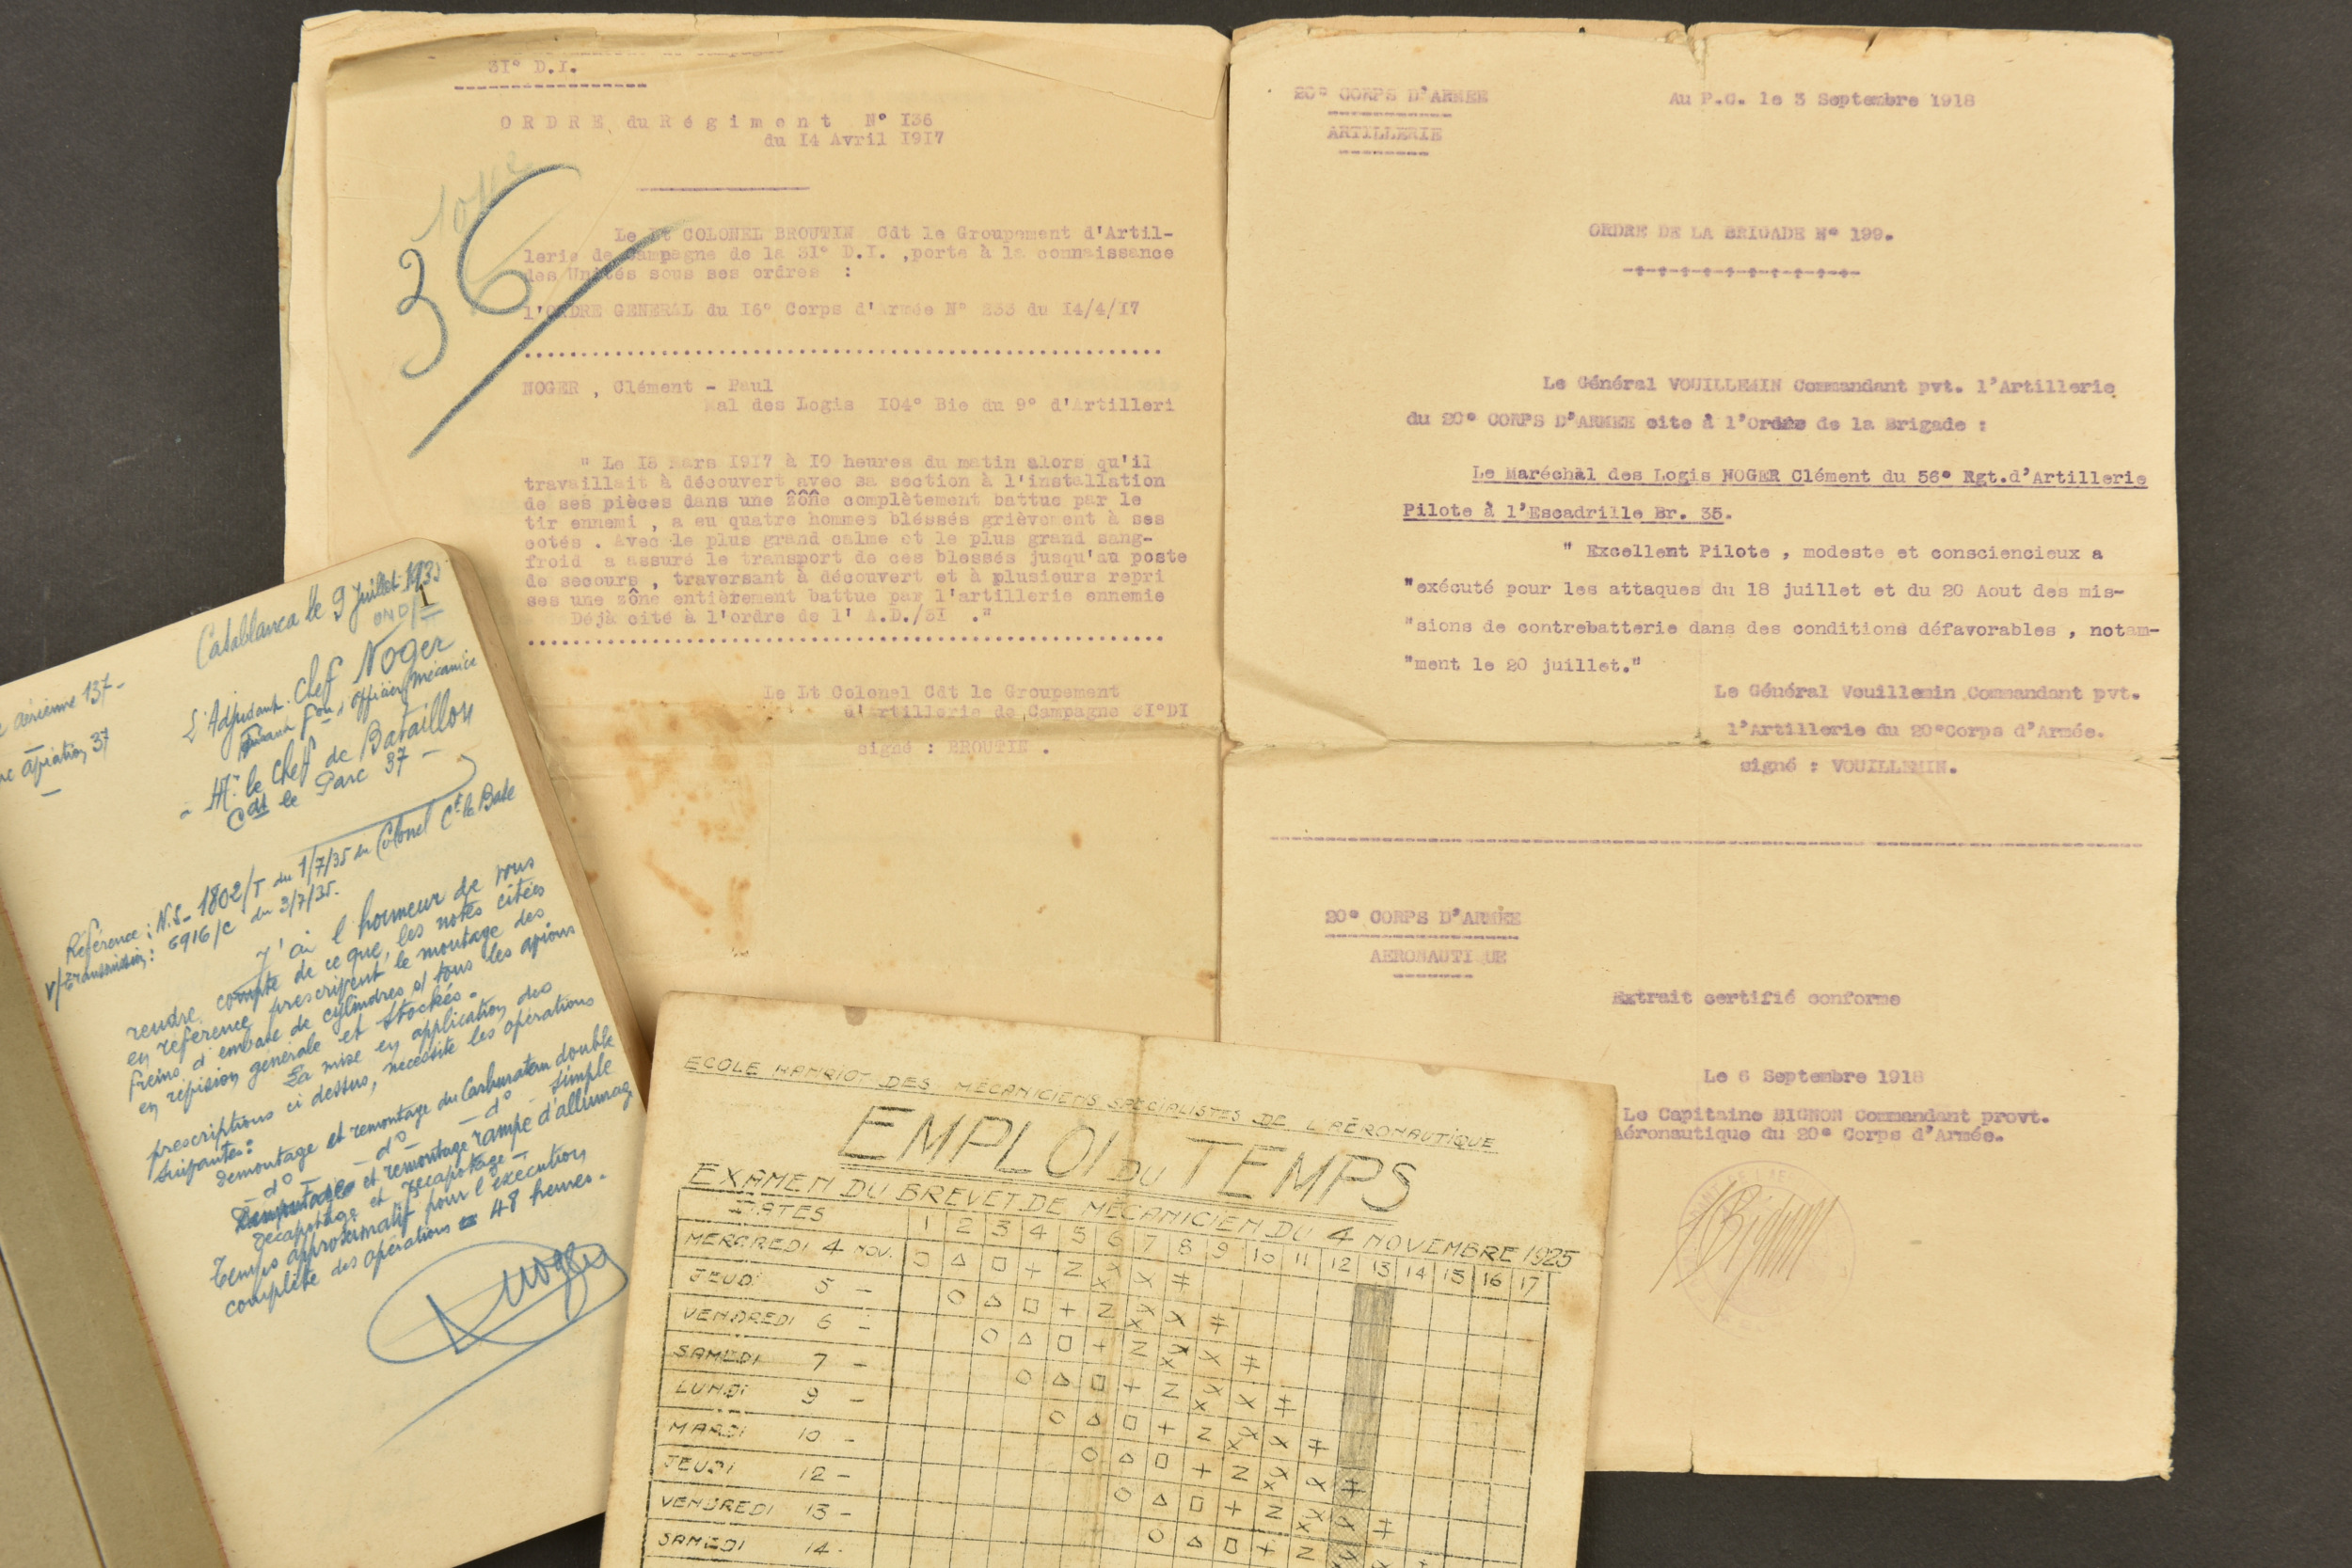 31° D.I.
ORDRE du Régiment N° I36
du I4 Avril I9I7
36
Le Lt COLONEL BROUTIN Cdt le Groupement d'Artil-
lerie de Campagne de la 3I° D.I. ,porte à la connaissance
des Unités sous ses ordres :
l'ORDRE GENERAL du I6° Corps d'Armée N° 233 du I4/4/I7
NOGER , Clément - Paul
Mal des Logis I04° Bie du 9° d'Artilleri
" Le I8 Mars I9I7 à I0 heures du matin alors qu'il
travaillait à découvert avec sa section à l'installation
de ses pièces dans une zône complètement battue par le
tir ennemi , a eu quatre hommes bléssés grièvement à ses
cotés . Avec le plus grand calme et le plus grand sang-
froid a assuré le transport de ces blessés jusqu'au poste
de secours , traversant à découvert et à plusieurs repri
ses une zône entièrement battue par l'artillerie ennemie
Déjà cité à l'ordre de l' A.D./3I ."
Le Lt Colonel Cdt le Groupement
d'Artillerie de Campagne 3I°DI
signé : BROUTIN .
20° CORPS D'ARMEE
ARTILLERIE
Au P.C. le 3 Septembre 1918
ORDRE DE LA BRIGADE N° 199.
Le Général VOUILLEMIN Commandant pvt. l'Artillerie
du 20° CORPS D'ARMEE cite à l'Ordre de la Brigade :
Le Maréchal des Logis NOGER Clément du 56° Rgt.d'Artillerie
Pilote à l'Escadrille Br. 35.
" Excellent Pilote , modeste et consciencieux a
"exécuté pour les attaques du 18 juillet et du 20 Aout des mis-
"sions de contrebatterie dans des conditions défavorables , notam-
"ment le 20 juillet."
Le Général Vouillemin Commandant pvt.
l'Artillerie du 20°Corps d'Armée.
signé : VOUILLEMIN.
20° CORPS D'ARMÉE
AERONAUTIQUE
Extrait certifié conforme
Le 6 Septembre 1918
Le Capitaine BIGNON Commandant provt.
Aéronautique du 20° Corps d'Armée.
Casablanca le 9 Juillet 1935
aérienne 137-
aviation 37
L'Adjudant-Chef Noger
faisant fon d'officier mécanici
à Mr le Chef de Bataillon
Cdt le Parc 37 -
Référence : N.S- 1802/T du 1/7/35 du Colonel Ct la Base
V/transmission : 6916/C du 3/7/35.
J'ai l'honneur de vous
rendre compte de ce que, les notes citées
en référence, prescrivent le montage des
freins d'embase de cylindres s/ tous les avions
en révision générale et stockés.
La mise en application des
prescriptions ci dessus, nécessite les opérations
suivantes :
démontage et remontage du Carburateur double
- d° - d° - simple
- d° - et remontage rampe d'allumag
décapotage et recapotage -
Temps approximatif pour l'exécution
complète des opérations = 48 heures.
Noger
ECOLE HANRIOT DES MÉCANICIENS SPÉCIALISTES DE L'AÉRONAUTIQUE
EMPLOI DU TEMPS
EXAMEN DU BREVET DE MÉCANICIEN DU 4 NOVEMBRE 1925
DATES 1 2 3 4 5 6 7 8 9 10 11 12 13 14 15 16 17
MERCREDI 4 NOV. O △ □ + Z XX X ‡
JEUDI 5 - O △ □ + Z XX X ‡
VENDREDI 6 - O △ □ + Z XX X ‡
SAMEDI 7 - O △ □ + Z XX X ‡
LUNDI 9 - O △ □ + Z XX X ‡
MARDI 10 - O △ □ + Z XX X ‡
JEUDI 12 - O △ □ + Z XX X ‡
VENDREDI 13 - O △ □ + Z
SAMEDI 14 -